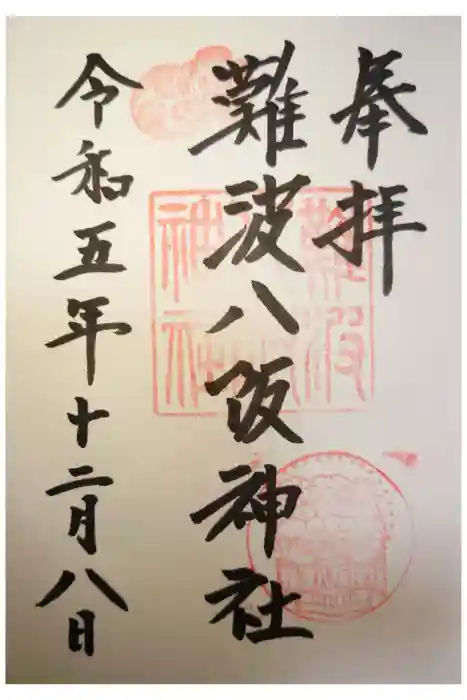 奉拝
難波八阪神社
令和五年十二月八日